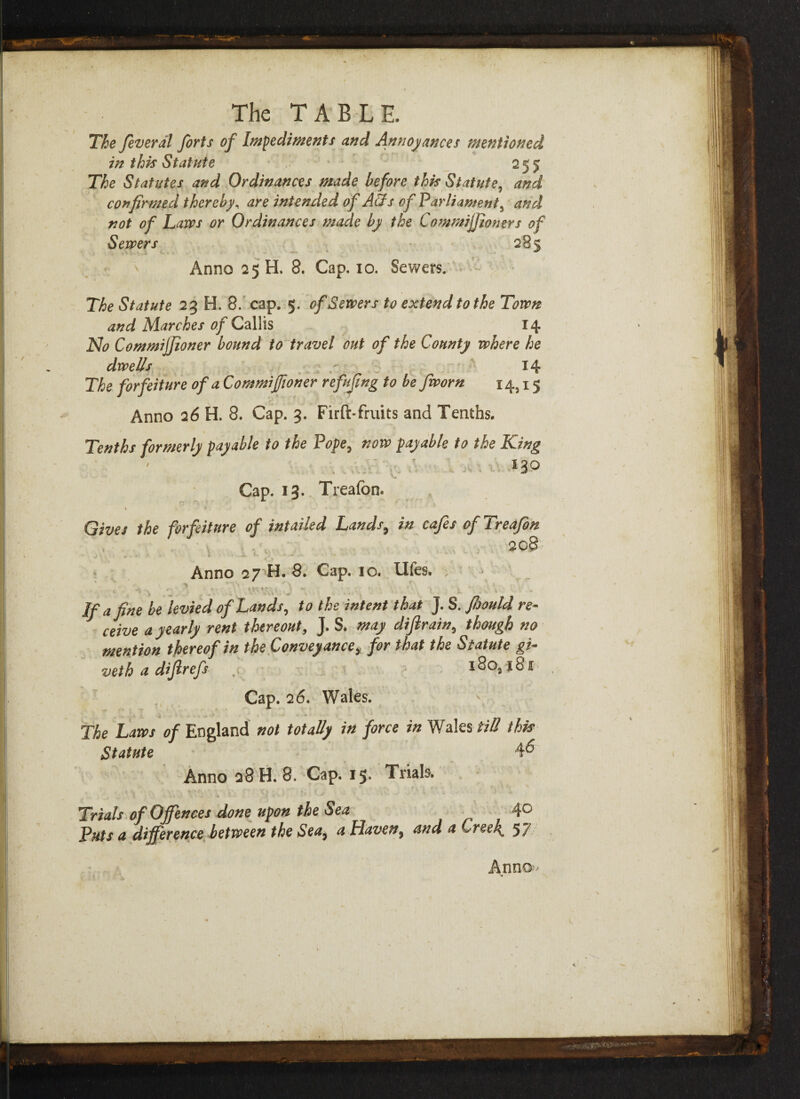 The TABLE.
The ſeveral ſorts of Impediments and Annoyances mentioned
in this Statute 255
The Statutes and Ordinances made before this Statute, and
confirmed thereby, are intended of Acts of Parliament, and
not of Laws or Ordinances made by the Commiſſioners of
Sewers 285
Anno 25 H. 8. Cap. 10. Sewers.
The Statute 23 H. 8. cap. 5. of Sewers to extend to the Town
and Marches of Callis 14
No Commiſſioner bound to travel out of the County where he
dwells 14
The forfeiture of a Commiſſioner refuſing to be ſworn 14, 15
Anno 26 H. 8. Cap. 3. Firſt-fruits and Tenths.
Tenths formerly payable to the Pope, now payable to the King
130
Cap. 13. Treaſon.
Gives the forfeiture of intailed Lands, in caſes of Treaſon
208
Anno 27 H. 8. Cap. 10. Uſes.
If a fine be levied of Lands, to the intent that J. S. ſhould re-
ceive a yearly rent thereout, J. S. may diſtrain, though no
mention thereof in the Conveyance, for that the Statute gi-
veth a diſtreſs 180, 181
Cap. 26. Wales.
The Laws of England not totally in force in Wales till this
Statute 46
Anno 28 H. 8. Cap. 15. Trials.
Trials of Offences done upon the Sea 40
Puts a difference between the Sea, a Haven, and a Creek 57
Anno